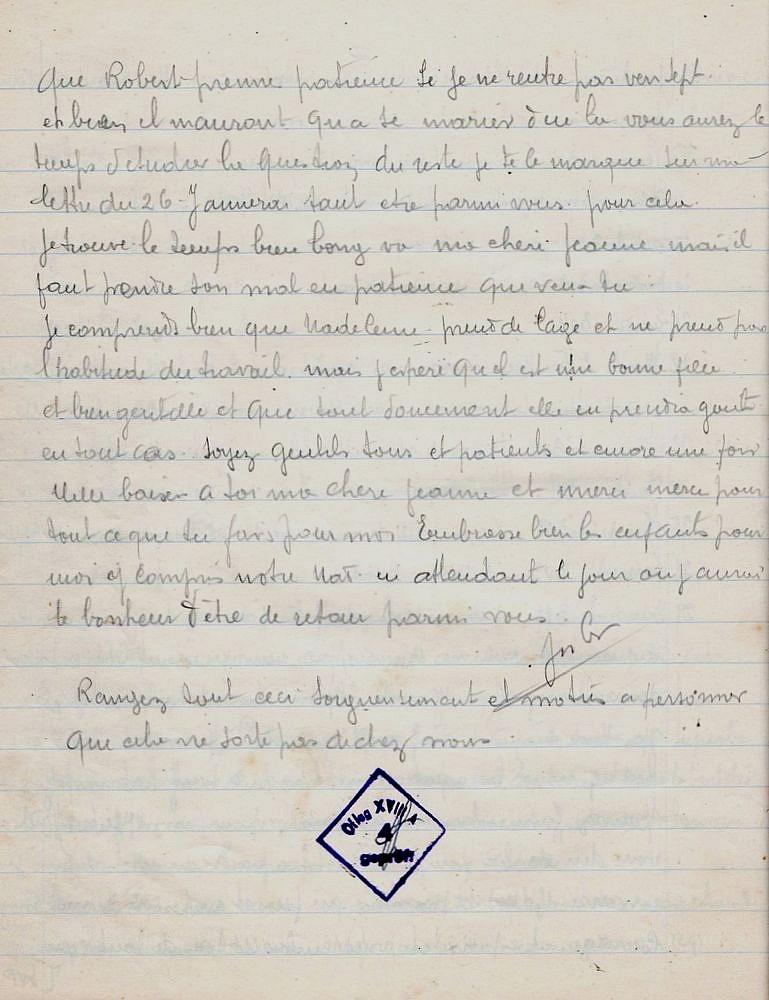 Que Robert prenne patience si je ne rentre pas vers sept.
et bien il mauront qu a se marier d'ici la vous aurez le
temps d'etudier la question, du reste je te le marque sur ma
lettre du 26 - J'aimerai tant etre parmi vous. pour cela
je trouve le temps bien long va ma cheri Jeanne mais il
faut prendre son mal en patience que veux-tu.
Je comprends bien que Madeleine prend de l'age et ne prend pas
l'habitude du travail. mais j'espere Qu'el est une bonne fille
et bien gentille et que tout doucement elle en prendra gout
en tout cas. Soyez gentils tous et patients et encore une fois
Mille baiser a toi ma chere Jeanne et merci merci pour
tout ce que tu fais pour moi Embrasse bien les enfants pour
moi y compris notre Mat. en attendant le jour ou j'aurai
le bonheur d'être de retour parmi vous.
Rangez tout ceci soigneusement et motus a personne
Que cela ne sorte pas de chez nous.
Oflag XVIII A
geprüft